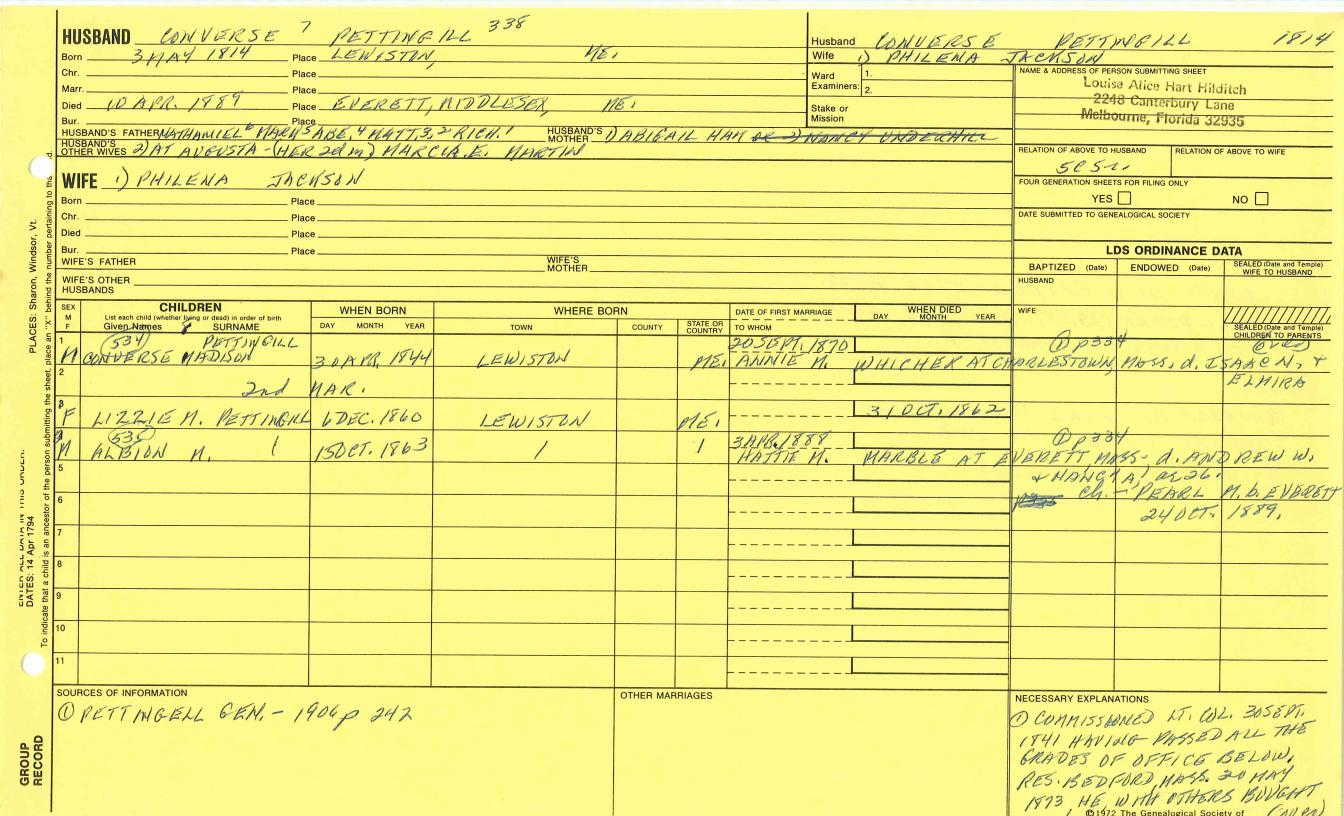 HUSBAND CONVERSE 7 PETTINGILL 338
Born 3 MAY 1814 Place LEWISTON, ME.
Chr. Place
Marr. Place
Died 10 APR. 1889 Place EVERETT, MIDDLESEX, ME.
Bur. Place
HUSBAND'S FATHER NATHANIEL 6 MARK 5 ABE, 4 MATT. 3, 2 RICH. 1 HUSBAND'S MOTHER 1) ABIGAIL HAM OR 2) NANCY UNDERHILL
HUSBAND'S OTHER WIVES 2) AT AUGUSTA - (HER 2d M) MARCIA. E. MARTIN
Husband CONVERSE PETTINGILL 1814
Wife 1) PHILENA JACKSON
Ward Examiners: 1.
2.
Stake or Mission
NAME & ADDRESS OF PERSON SUBMITTING SHEET
Louise Alice Hart Hilditch
2248 Canterbury Lane
Melbourne, Florida 32935
RELATION OF ABOVE TO HUSBAND RELATION OF ABOVE TO WIFE
FOUR GENERATION SHEETS FOR FILING ONLY
YES NO
DATE SUBMITTED TO GENEALOGICAL SOCIETY
WIFE 1) PHILENA JACKSON
Born Place
Chr. Place
Died Place
Bur. Place
WIFE'S FATHER WIFE'S MOTHER
WIFE'S OTHER HUSBANDS
LDS ORDINANCE DATA
BAPTIZED (Date) ENDOWED (Date) SEALED (Date and Temple) WIFE TO HUSBAND
HUSBAND
WIFE
SEALED (Date and Temple) CHILDREN TO PARENTS
SEX M F CHILDREN WHEN BORN WHERE BORN DATE OF FIRST MARRIAGE WHEN DIED
List each child (whether living or dead) in order of birth
Given Names SURNAME DAY MONTH YEAR TOWN COUNTY STATE OR COUNTRY TO WHOM DAY MONTH YEAR
1 534 PETTINGILL 20 SEPT. 1870 1 p334
M CONVERSE MADISON 30 APR. 1844 LEWISTON ME. ANNIE M. WHICHER AT CHARLESTOWN, MASS, d. ISAAC N. +
2 ELMIRA
2nd MAR.
3 31 OCT. 1862
F LIZZIE M. PETTINGILL 6 DEC. 1860 LEWISTON ME.
4 535 3 APR. 1888 1 p334
M ALBION M. 15 OCT. 1863 HATTIE M. MARBLE AT EVERETT, MASS - d. ANDREW W.
5 26.
6 ch. - PEARL M. b. EVERETT
24 OCT. 1889.
7
8
9
10
11
SOURCES OF INFORMATION
1 PETTINGELL GEN. - 1906 p 242
OTHER MARRIAGES
NECESSARY EXPLANATIONS
1 COMMISSIONED LT. COL. 30 SEPT.
1841 HAVING PASSED ALL THE
GRADES OF OFFICE BELOW.
RES. BEDFORD, MASS. 20 MAY
1873 HE, WITH OTHERS BOUGHT
©1972 The Genealogical Society of
PLACES: Sharon, Windsor, Vt.
ENTER ALL DATA IN THIS ORDER:
DATES: 14 Apr 1794
To indicate that a child is an ancestor of the person submitting the sheet, place an "X" behind the number pertaining to
GROUP RECORD